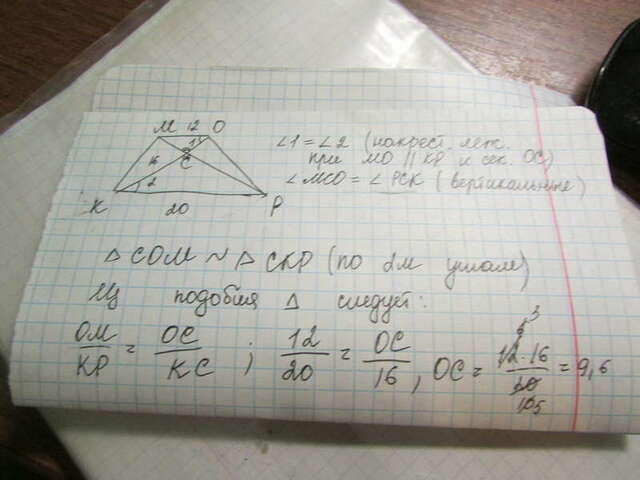 M 12 O
1
16 C
2
K 20 P
∠1 = ∠2 (накрест. леж.
при MO || KP и сек. OC)
∠MCO = ∠PCK (вертикальные)
△ COM ~ △ CKP (по 2м углам)
Из подобия △ следует:
OM/KP = OC/KC ; 12/20 = OC/16 , OC = 12·16/20 = 9,6
6 3
10 5